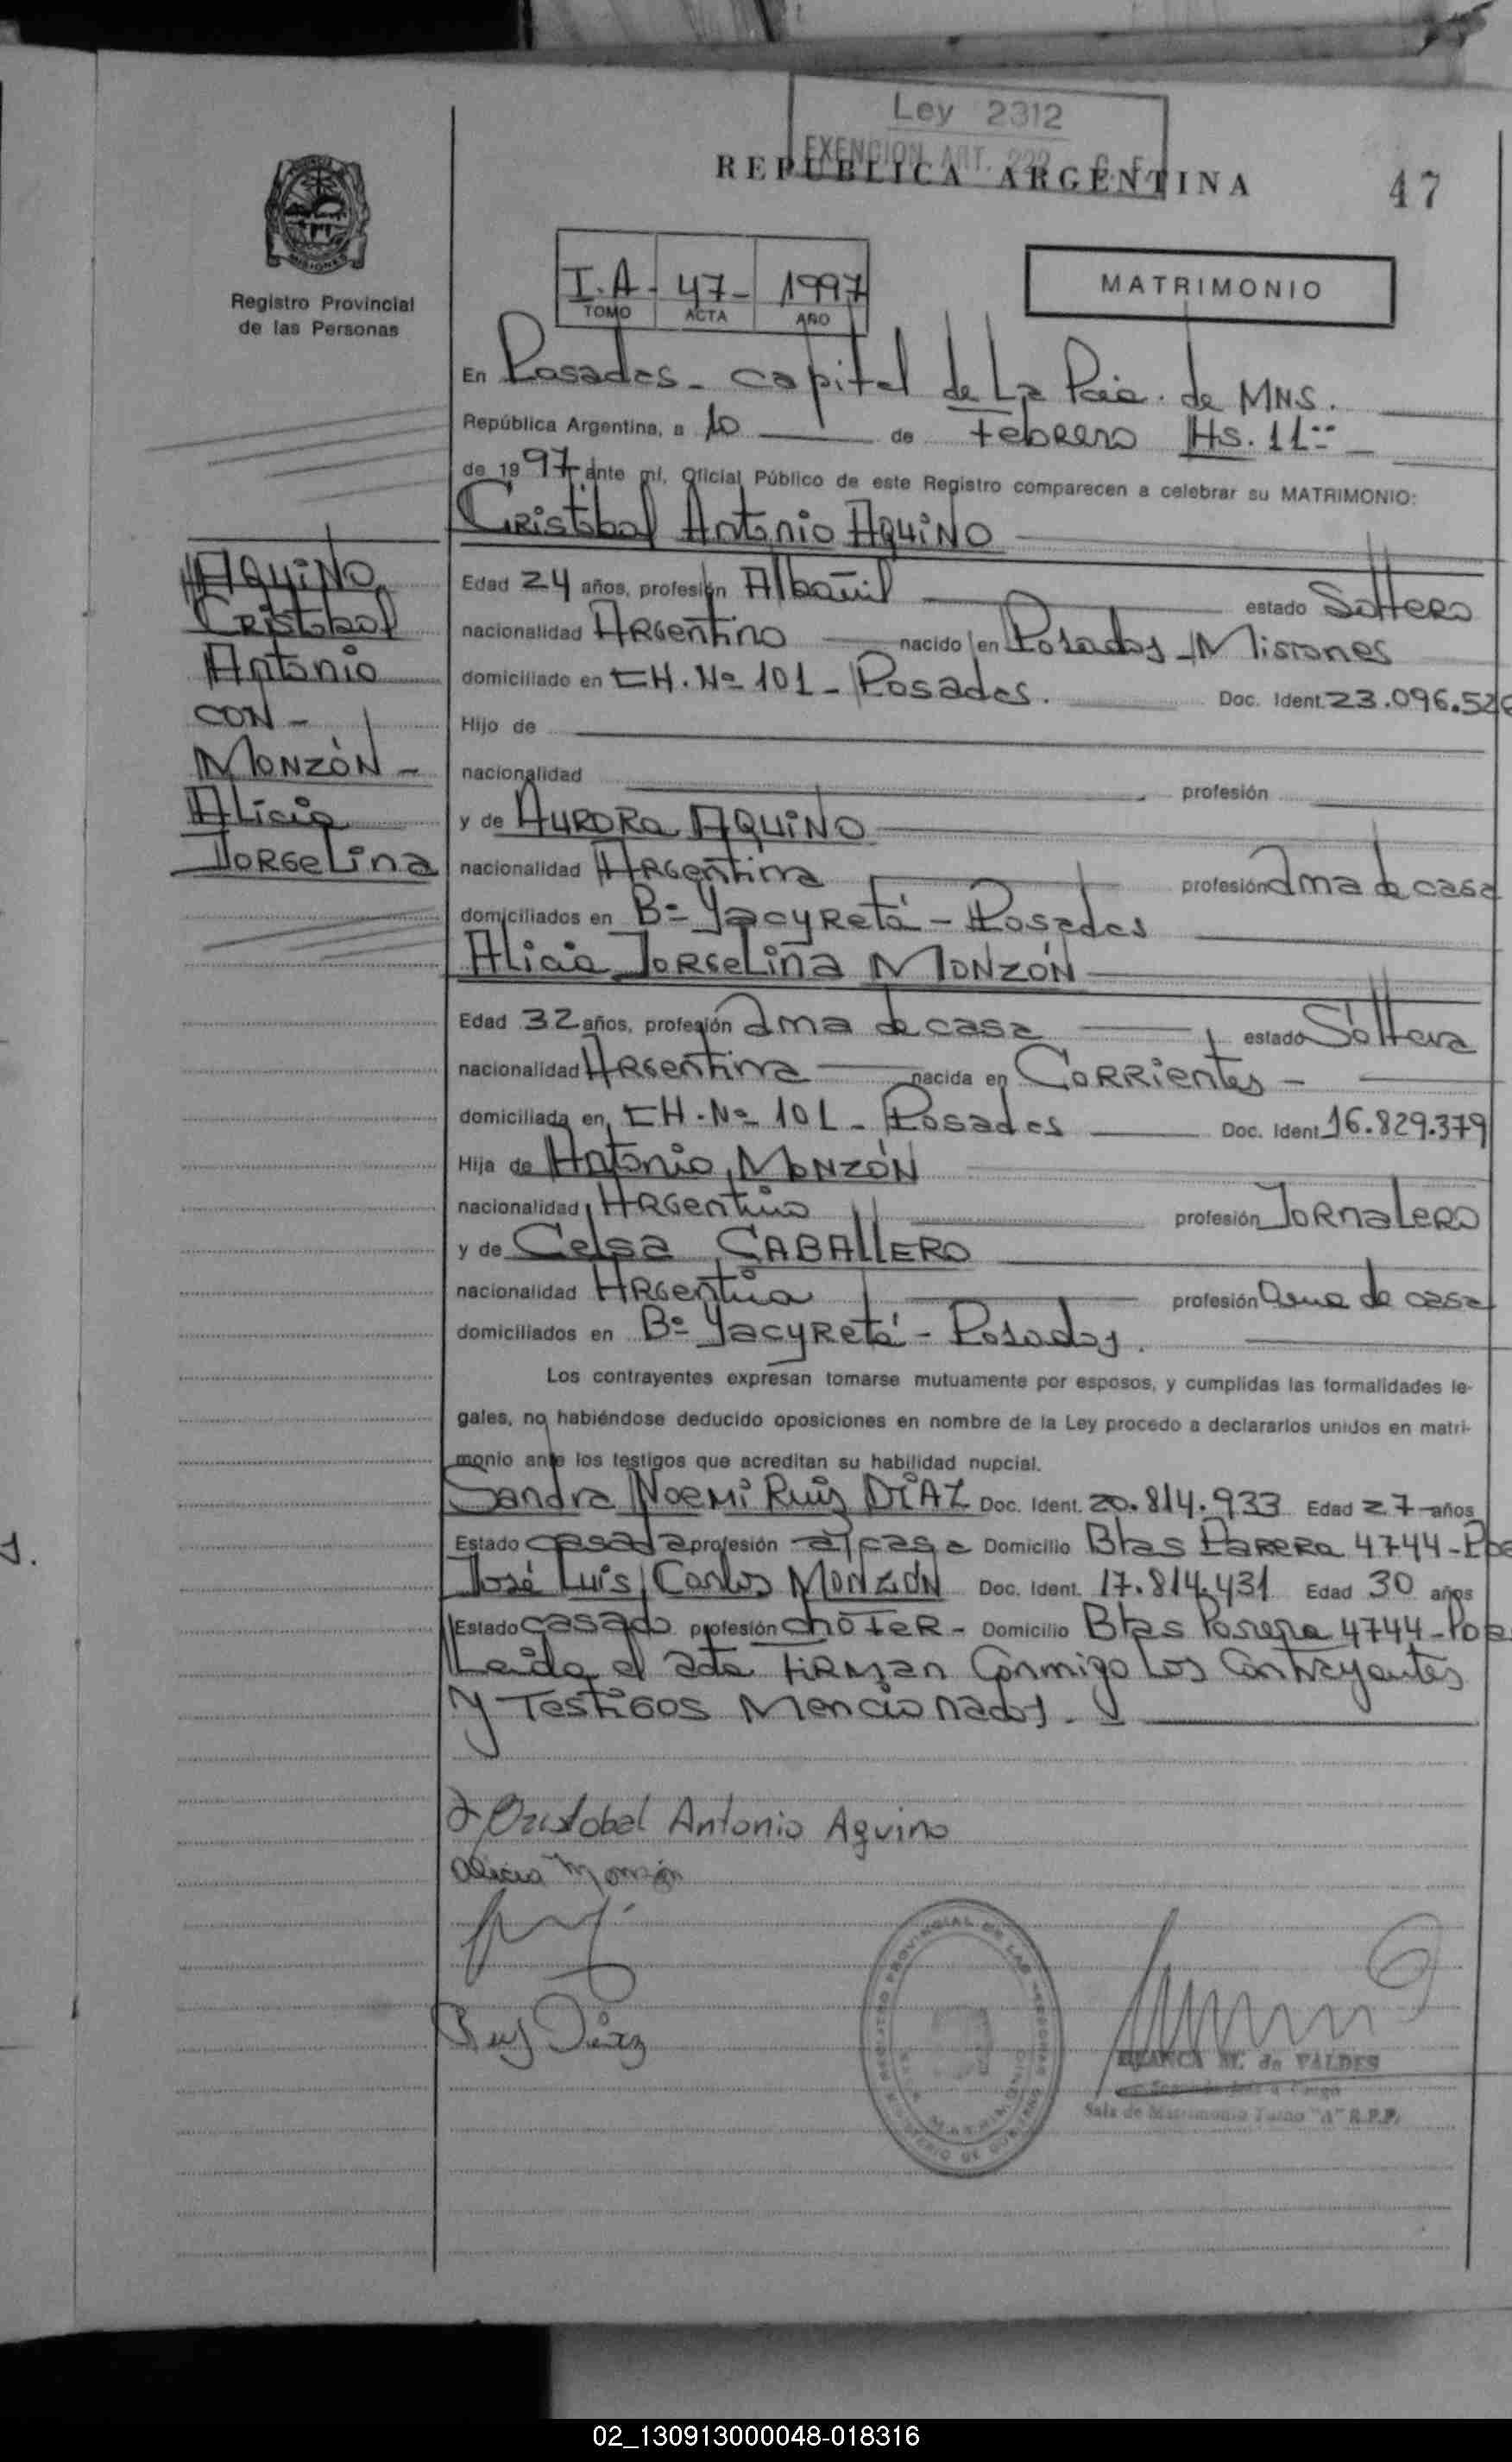 Ley 2312
EXENCION ART.
REPUBLICA ARGENTINA
47
MISIONES
Registro Provincial
de las Personas
I.A- 47- 1997
TOMO ACTA AÑO
MATRIMONIO
En Posadas - capital de La Pcia. de MNS.
República Argentina, a 10 de Febrero Hs. 11
de 1997 ante mí, Oficial Público de este Registro comparecen a celebrar su MATRIMONIO:
Cristobal Antonio AQUINO
AQUINO
Cristobal
Antonio
CON -
MONZÓN -
Alicia
Jorgelina
Edad 24 años, profesión Albañil estado Soltero
nacionalidad Argentino nacido en Posadas - Misiones
domiciliado en CH. Nº 101 - Posadas. Doc. Ident. 23.096.526
Hijo de
nacionalidad profesión
y de AURORA AQUINO
nacionalidad Argentina profesión ama de casa
domiciliados en Bº Yacyretá - Posadas
Alicia Jorgelina MONZÓN
Edad 32 años, profesión ama de casa estado Soltera
nacionalidad Argentina nacida en Corrientes -
domiciliada en CH. Nº 101 - Posadas Doc. Ident. 16.829.379
Hija de Antonio MONZÓN
nacionalidad Argentino profesión Jornalero
y de Celsa CABALLERO
nacionalidad Argentina profesión ama de casa
domiciliados en Bº Yacyretá - Posadas.
Los contrayentes expresan tomarse mutuamente por esposos, y cumplidas las formalidades le-
gales, no habiéndose deducido oposiciones en nombre de la Ley procedo a declararlos unidos en matri-
monio ante los testigos que acreditan su habilidad nupcial.
Sandra Noemi Ruiz DIAZ Doc. Ident. 20.814.933 Edad 27 años
Estado casada profesión a/casa Domicilio Blas Parera 4744 - Pos
José Luis Carlos MONZÓN Doc. Ident. 17.814.431 Edad 30 años
Estado casado profesión chofer - Domicilio Blas Parera 4744 - Pos
Leida el acta firman Conmigo Los Contrayentes
y Testigos Mencionados.
Cristobal Antonio Aquino
Alicia Monzón
Ruiz Diaz
REGISTRO PROVINCIAL DE LAS PERSONAS
MINISTERIO DE GOBIERNO
BLANCA M. de VALDES
Sala de Matrimonio Turno "A" R.P.P.
02_130913000048-018316